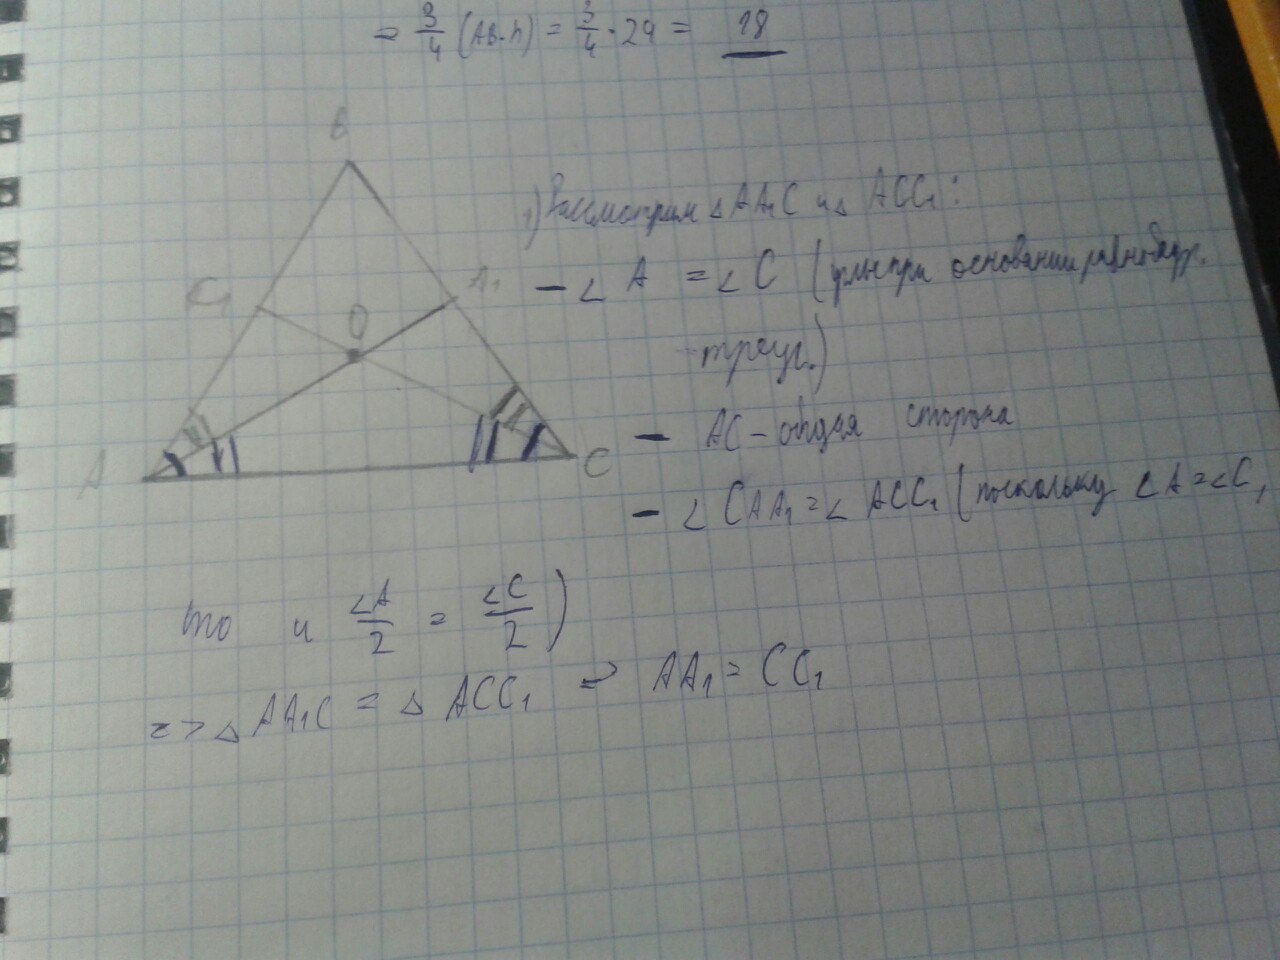 = 3/4 (AB·h) = 3/4 · 24 = 18
B
C₁
A₁
O
A
C
1) Рассмотрим △ AA₁C и △ ACC₁:
- ∠ A = ∠ C (углы при основании равнобедр.
треуг.)
- AC - общая сторона
- ∠ CAA₁ = ∠ ACC₁ (поскольку ∠A = ∠C,
то и ∠A/2 = ∠C/2)
=> △ AA₁C = △ ACC₁ => AA₁ = CC₁